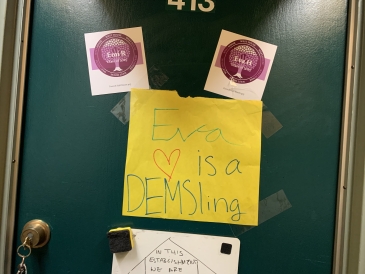 413
Emi R
Eva R
Eva
♡ is a
DEMSling
IN THIS
ESTABLISHMENT
WE ARE